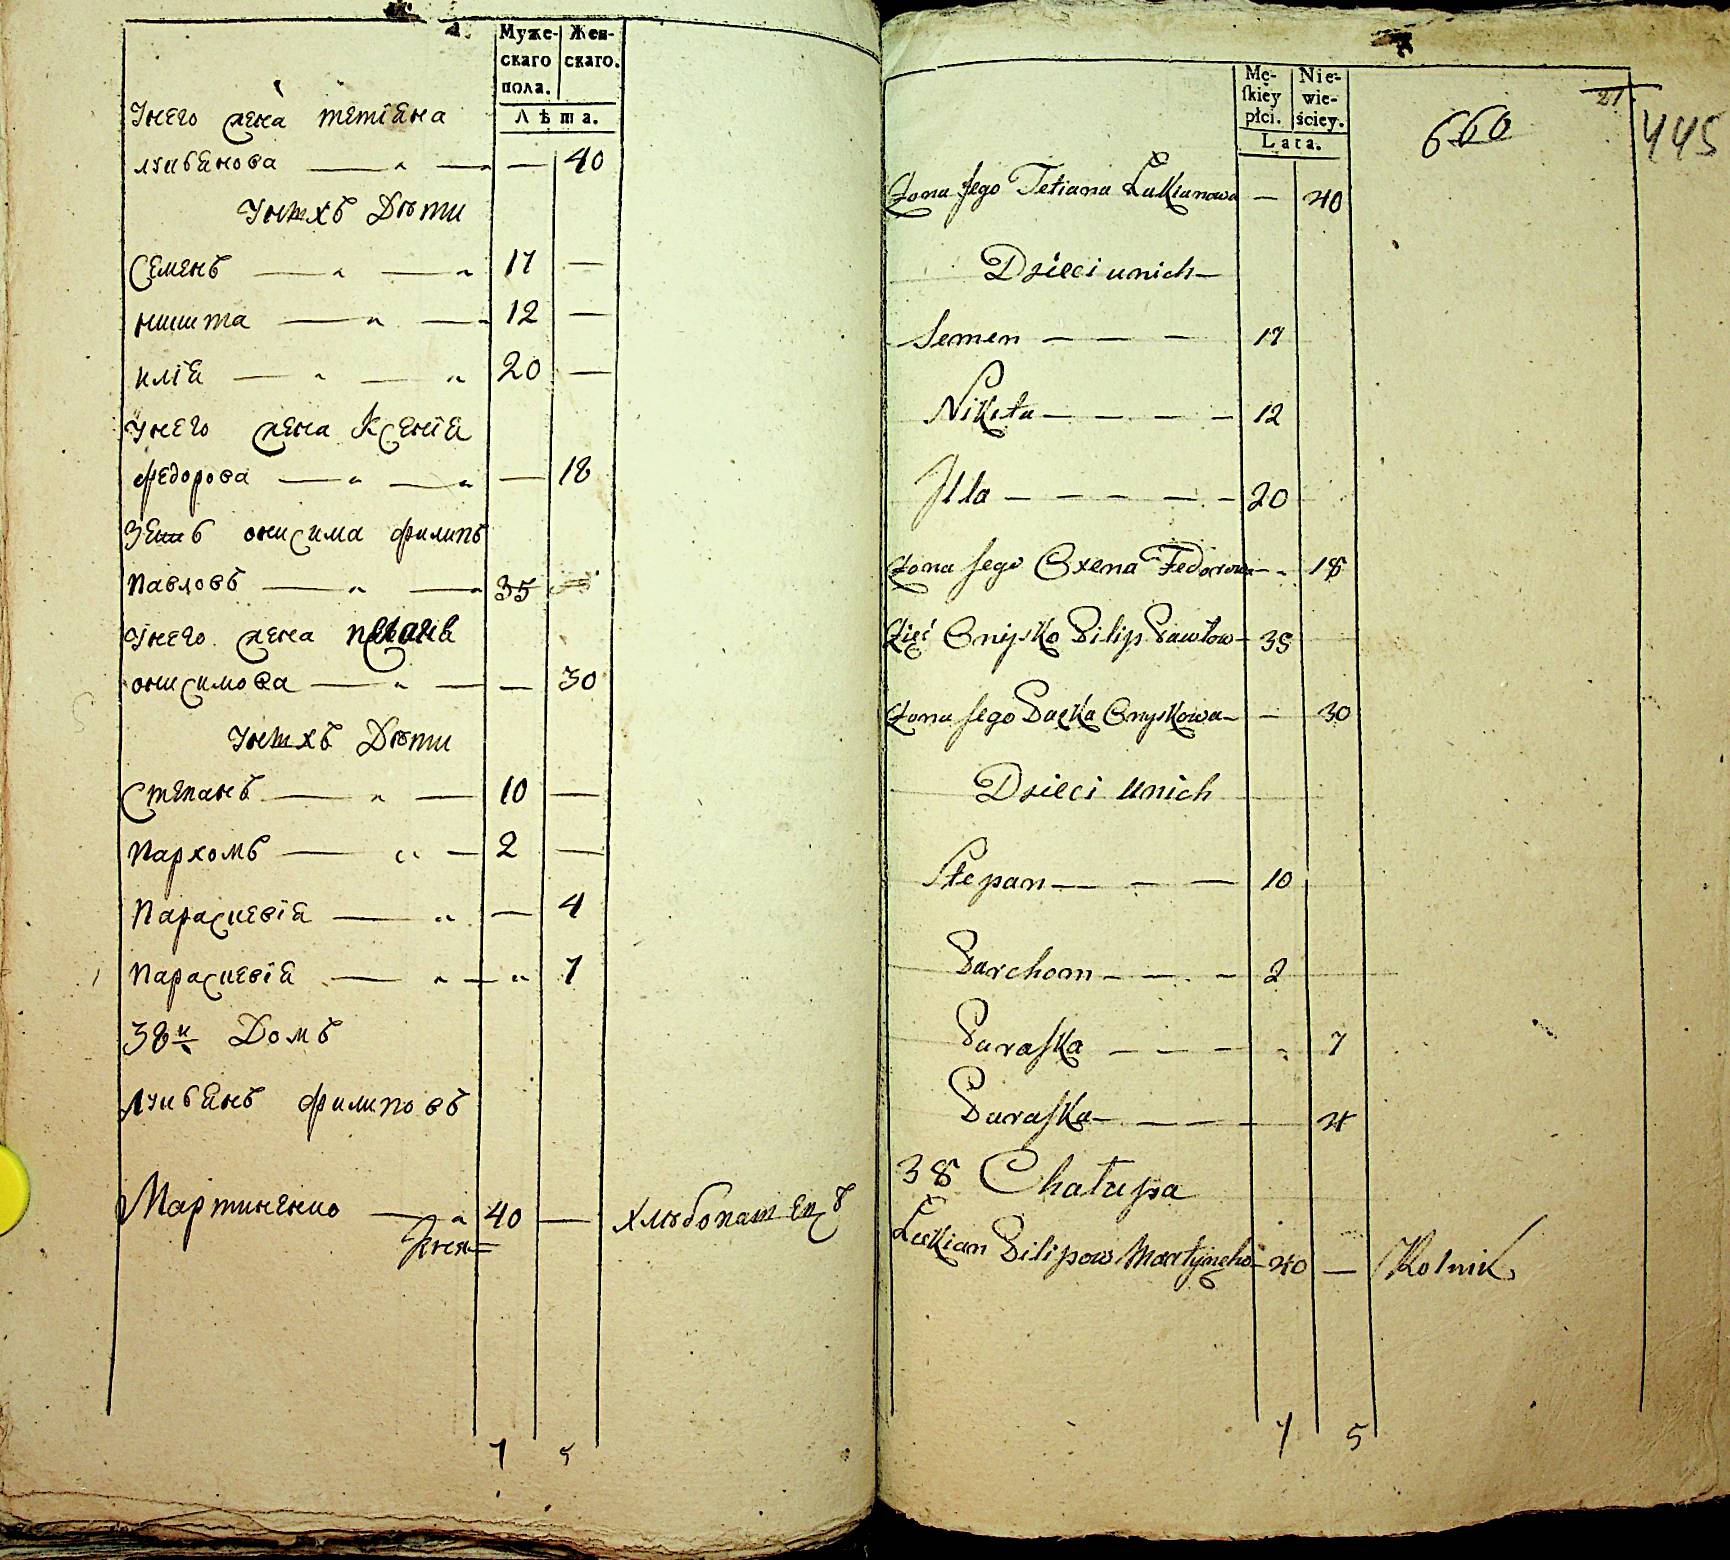 Муже- Жен-
скаго скаго.
пола.
Лѣта.
Унего жена тетіана
лукіанова — — 40
Унихъ Дѣти
Семенъ — 17 —
никита — 12 —
иліа — 20 —
Унего жена Ксеніа
федорова — — 18
Зеть онисима филипъ
Павловъ — 35
Унего жена
онисимова — — 30
Унихъ Дѣти
Степанъ — 10 —
Пархомъ — 2 —
Параскевіа — — 4
Параскевіа — 7
38й Домъ
Лукіанъ филиповъ
Мартиненко — 40 — хлѣбопашецъ
7 5
Mę- Nie-
skiey wie-
płci. ściey.
Lata.
21
660
445
Żona Jego Tetiana Łukianowa — 40
Dzieci unich —
Semen — — — 17
Nikita — — — — 12
Illa — — — — — 20
Żona Jego Oxena Fedorowa — 18
Zięć Onyśko Pilip Pawłow — 35
Żona Jego Paska Onyskowa — — 30
Dzieci unich
Stepan — — — 10
Parchom — — — 2
Paraska — — — 7
Paraska — — — — 4
38 Chałupa
Łukian Pilipow Martyneko — 40 — Rolnik
7 5